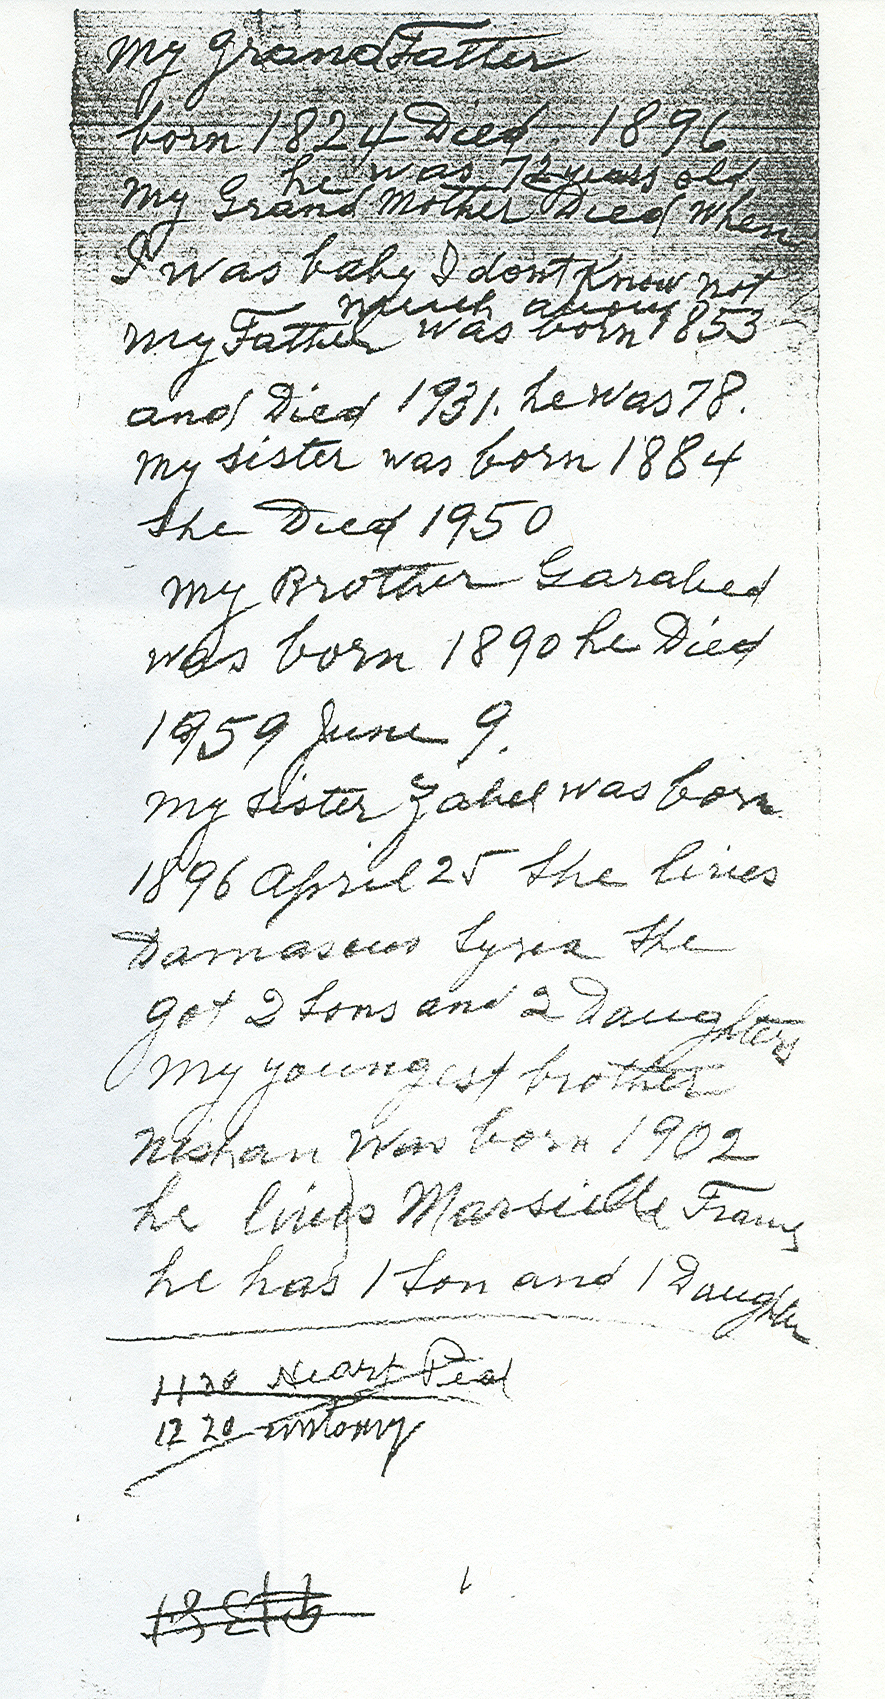 My GrandFather
born 1824 Died 1896
he was 72 years old
My Grand Mother Died when
I was baby I dont Know not
much about
my Father was born 1853
and Died 1931. he was 78.
my sister was born 1884
she Died 1950
my Brother Garabed
was born 1890 he Died
1959 June 9.
my sister Zabel was born
1896 April 25 She lives
Damascus Syria She
got 2 Sons and 2 Daughters
my youngest brother
Nishan was born 1902
he lives Marsielle France
he has 1 Son and 1 Daughter
1130 Heart
12 20